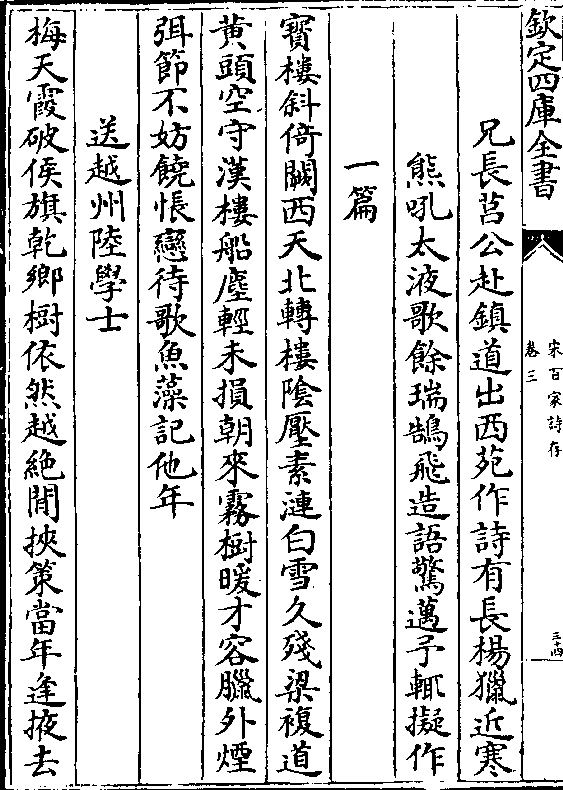 欽定四庫全書
宋百家詩存
卷三
三十四
兄長莒公赴鎮道出西苑作詩有長楊獵近寒
熊吼太液歌餘瑞鵠飛造語驚邁予輒擬作
一篇
寳樓斜倚闕西天北轉樓隂壓素漣白雪久殘梁複道
黄頭空守漢樓船塵輕未損朝來霧樹暖才容臘外煙
弭節不妨饒悵戀待歌魚藻記他年
送越州陸學士
梅天霞破候旗乾鄉樹依然越絶間挾策當年逢掖去